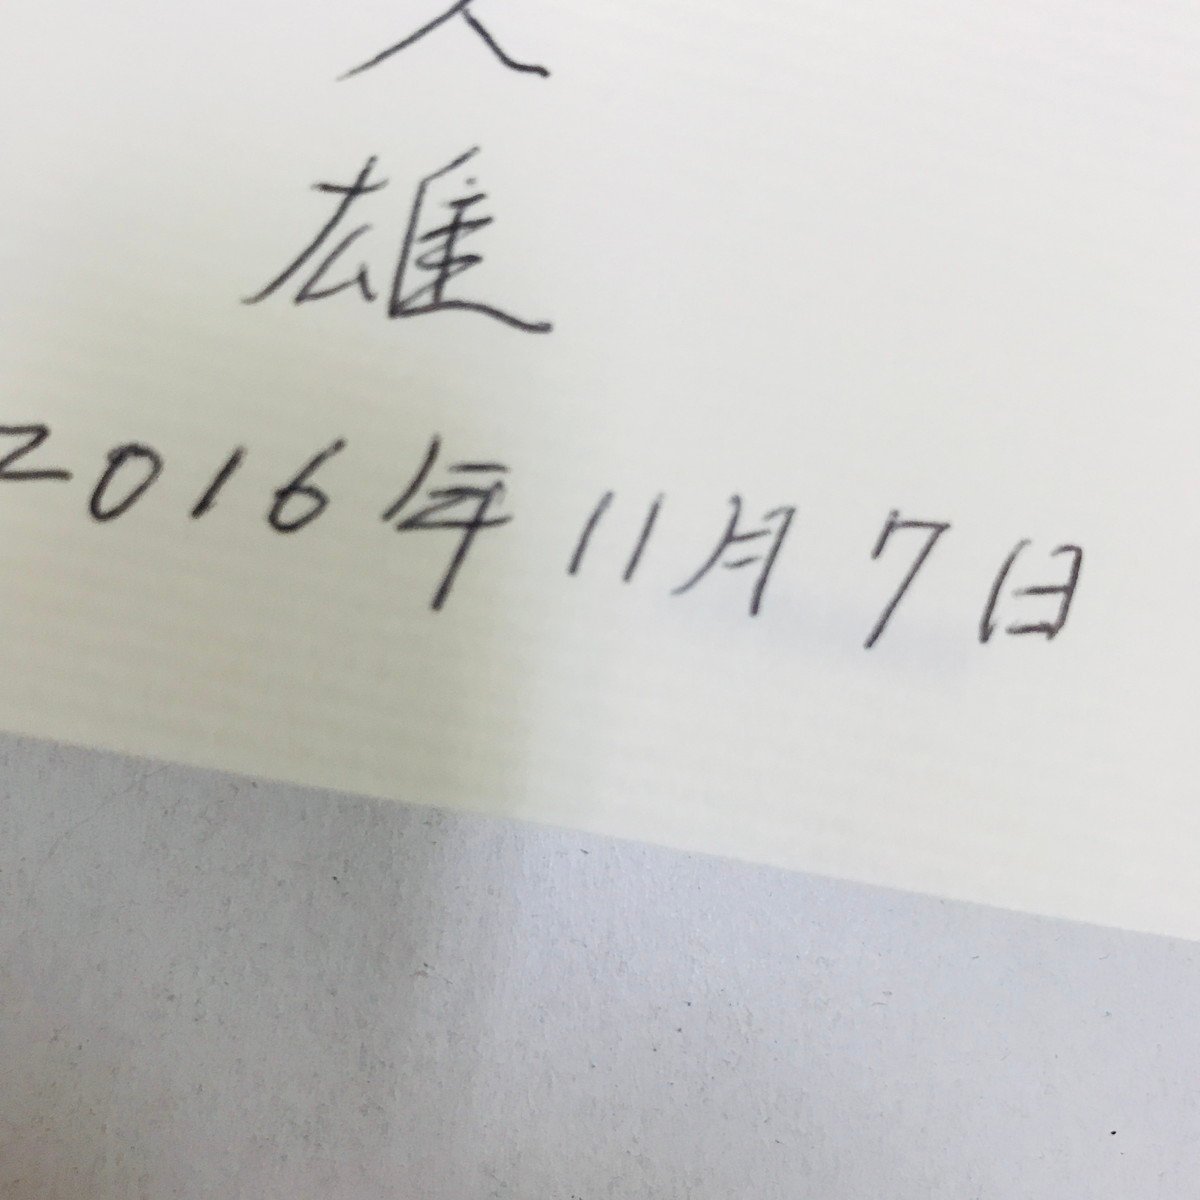 雄
2016年11月7日